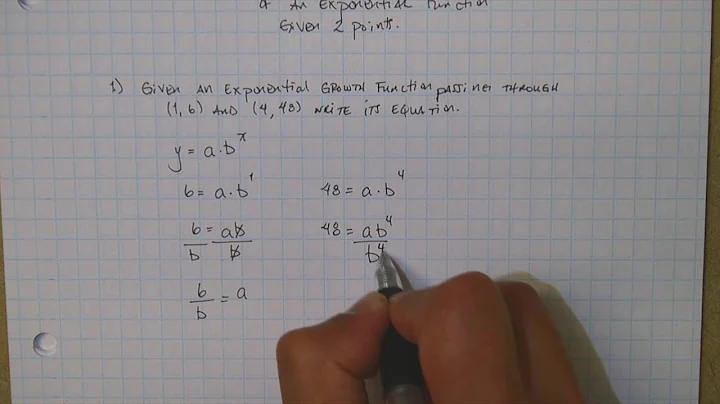 of An Exponential Function
Given 2 points.
1) Given An Exponential Growth Function passing through
(1, 6) and (4, 48) write its equation.
y = a·b^x
6 = a·b^1 48 = a·b^4
6/b = ab/b 48 = ab^4/b^4
6/b = a